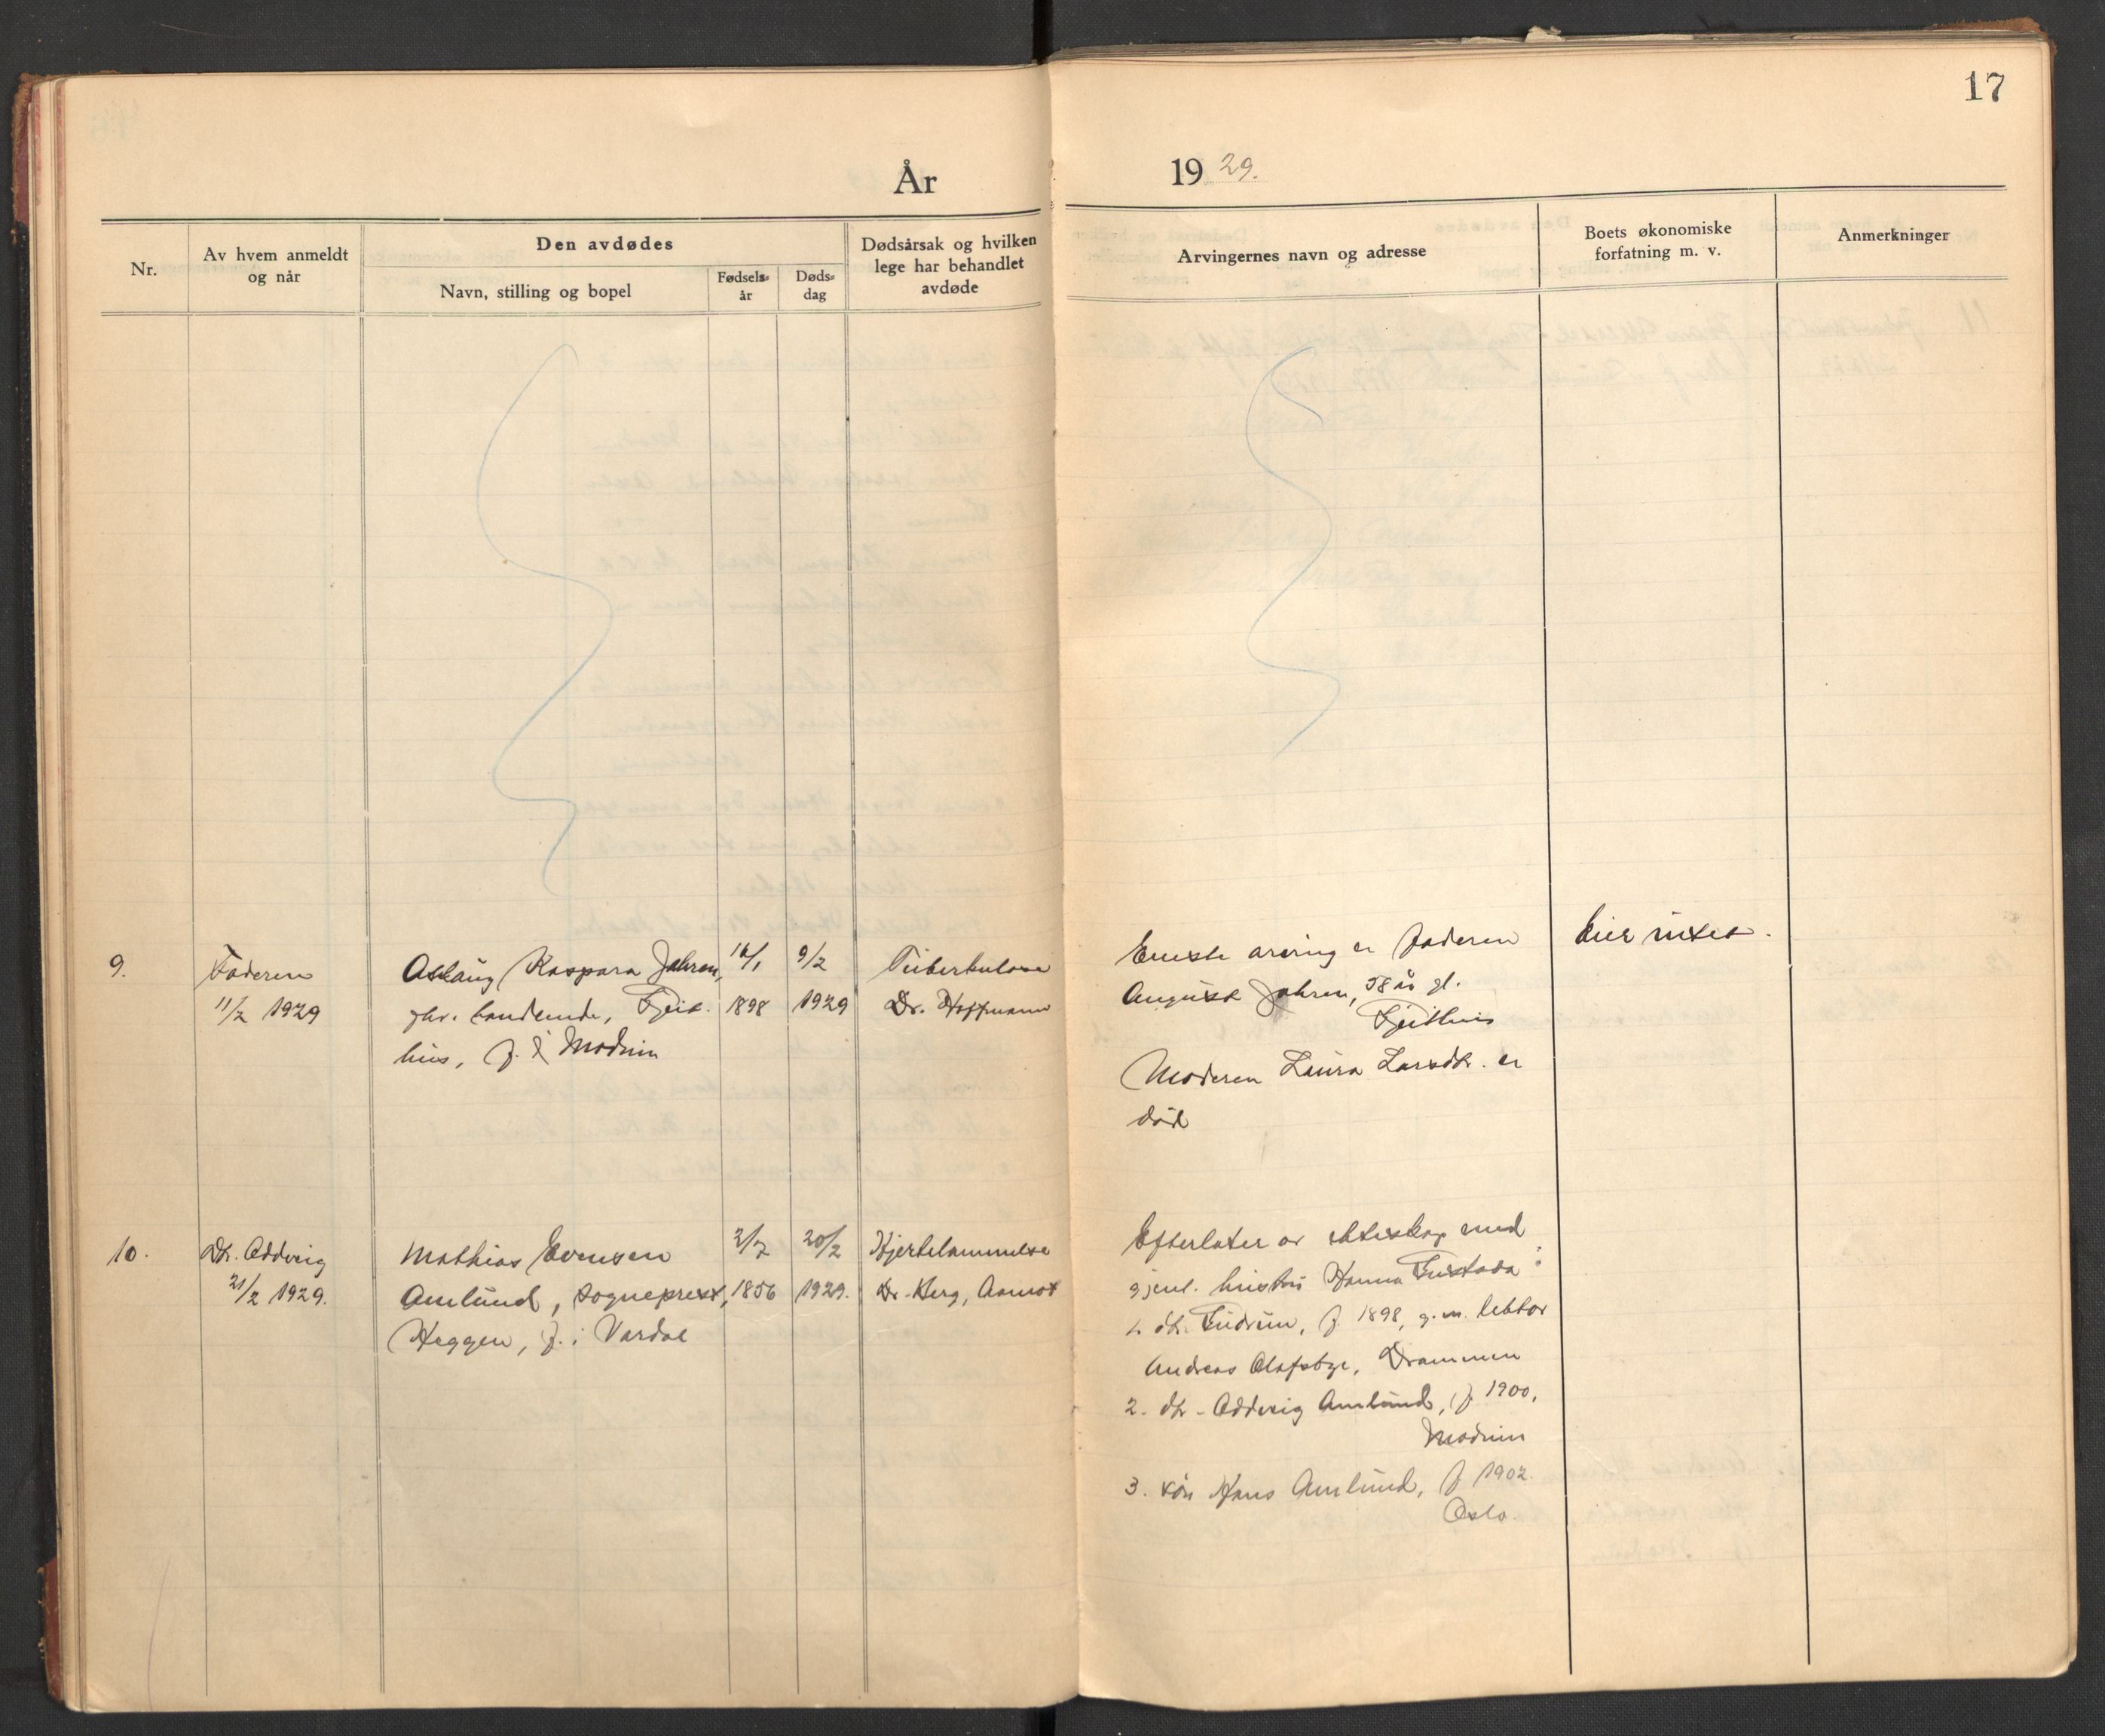 17
År 1929.
Nr.
Av hvem anmeldt
og når
Den avdødes
Navn, stilling og bopel
Fødsels-
år
Døds-
dag
Dødsårsak og hvilken
lege har behandlet
avdøde
Arvingernes navn og adresse
Boets økonomiske
forfatning m. v.
Anmerkninger
9.
Faderen
11/2 1929
Aslaug Kaspara Jahren,
Geit-
hus, f. i Modum
16/1
1898
9/2
1929
Tuberkulose
Dr. Hoffmann
Eneste arving er faderen
August Jahren, 58 år gl.
Geithus
Moderen Laura Larsdtr. er
død
Eier intet.
10.
Dtr. Oddveig
21/2 1929.
Mathias Evensen
Amlund, sogneprest,
Heggen, f. i Vardal
2/7
1856
20/2
1929.
Hjertelammelse
Dr. Berg, Aamot
Efterlater av ekteskap med
gjenl. hustru Hanna Gustava:
1. dtr. Gudrun, f. 1898, g. m. lektor
Andreas Olafsbye, Drammen
2. dtr. Oddveig Amlund, f. 1900,
Modum
3. søn Hans Amlund, f. 1902.
Oslo.